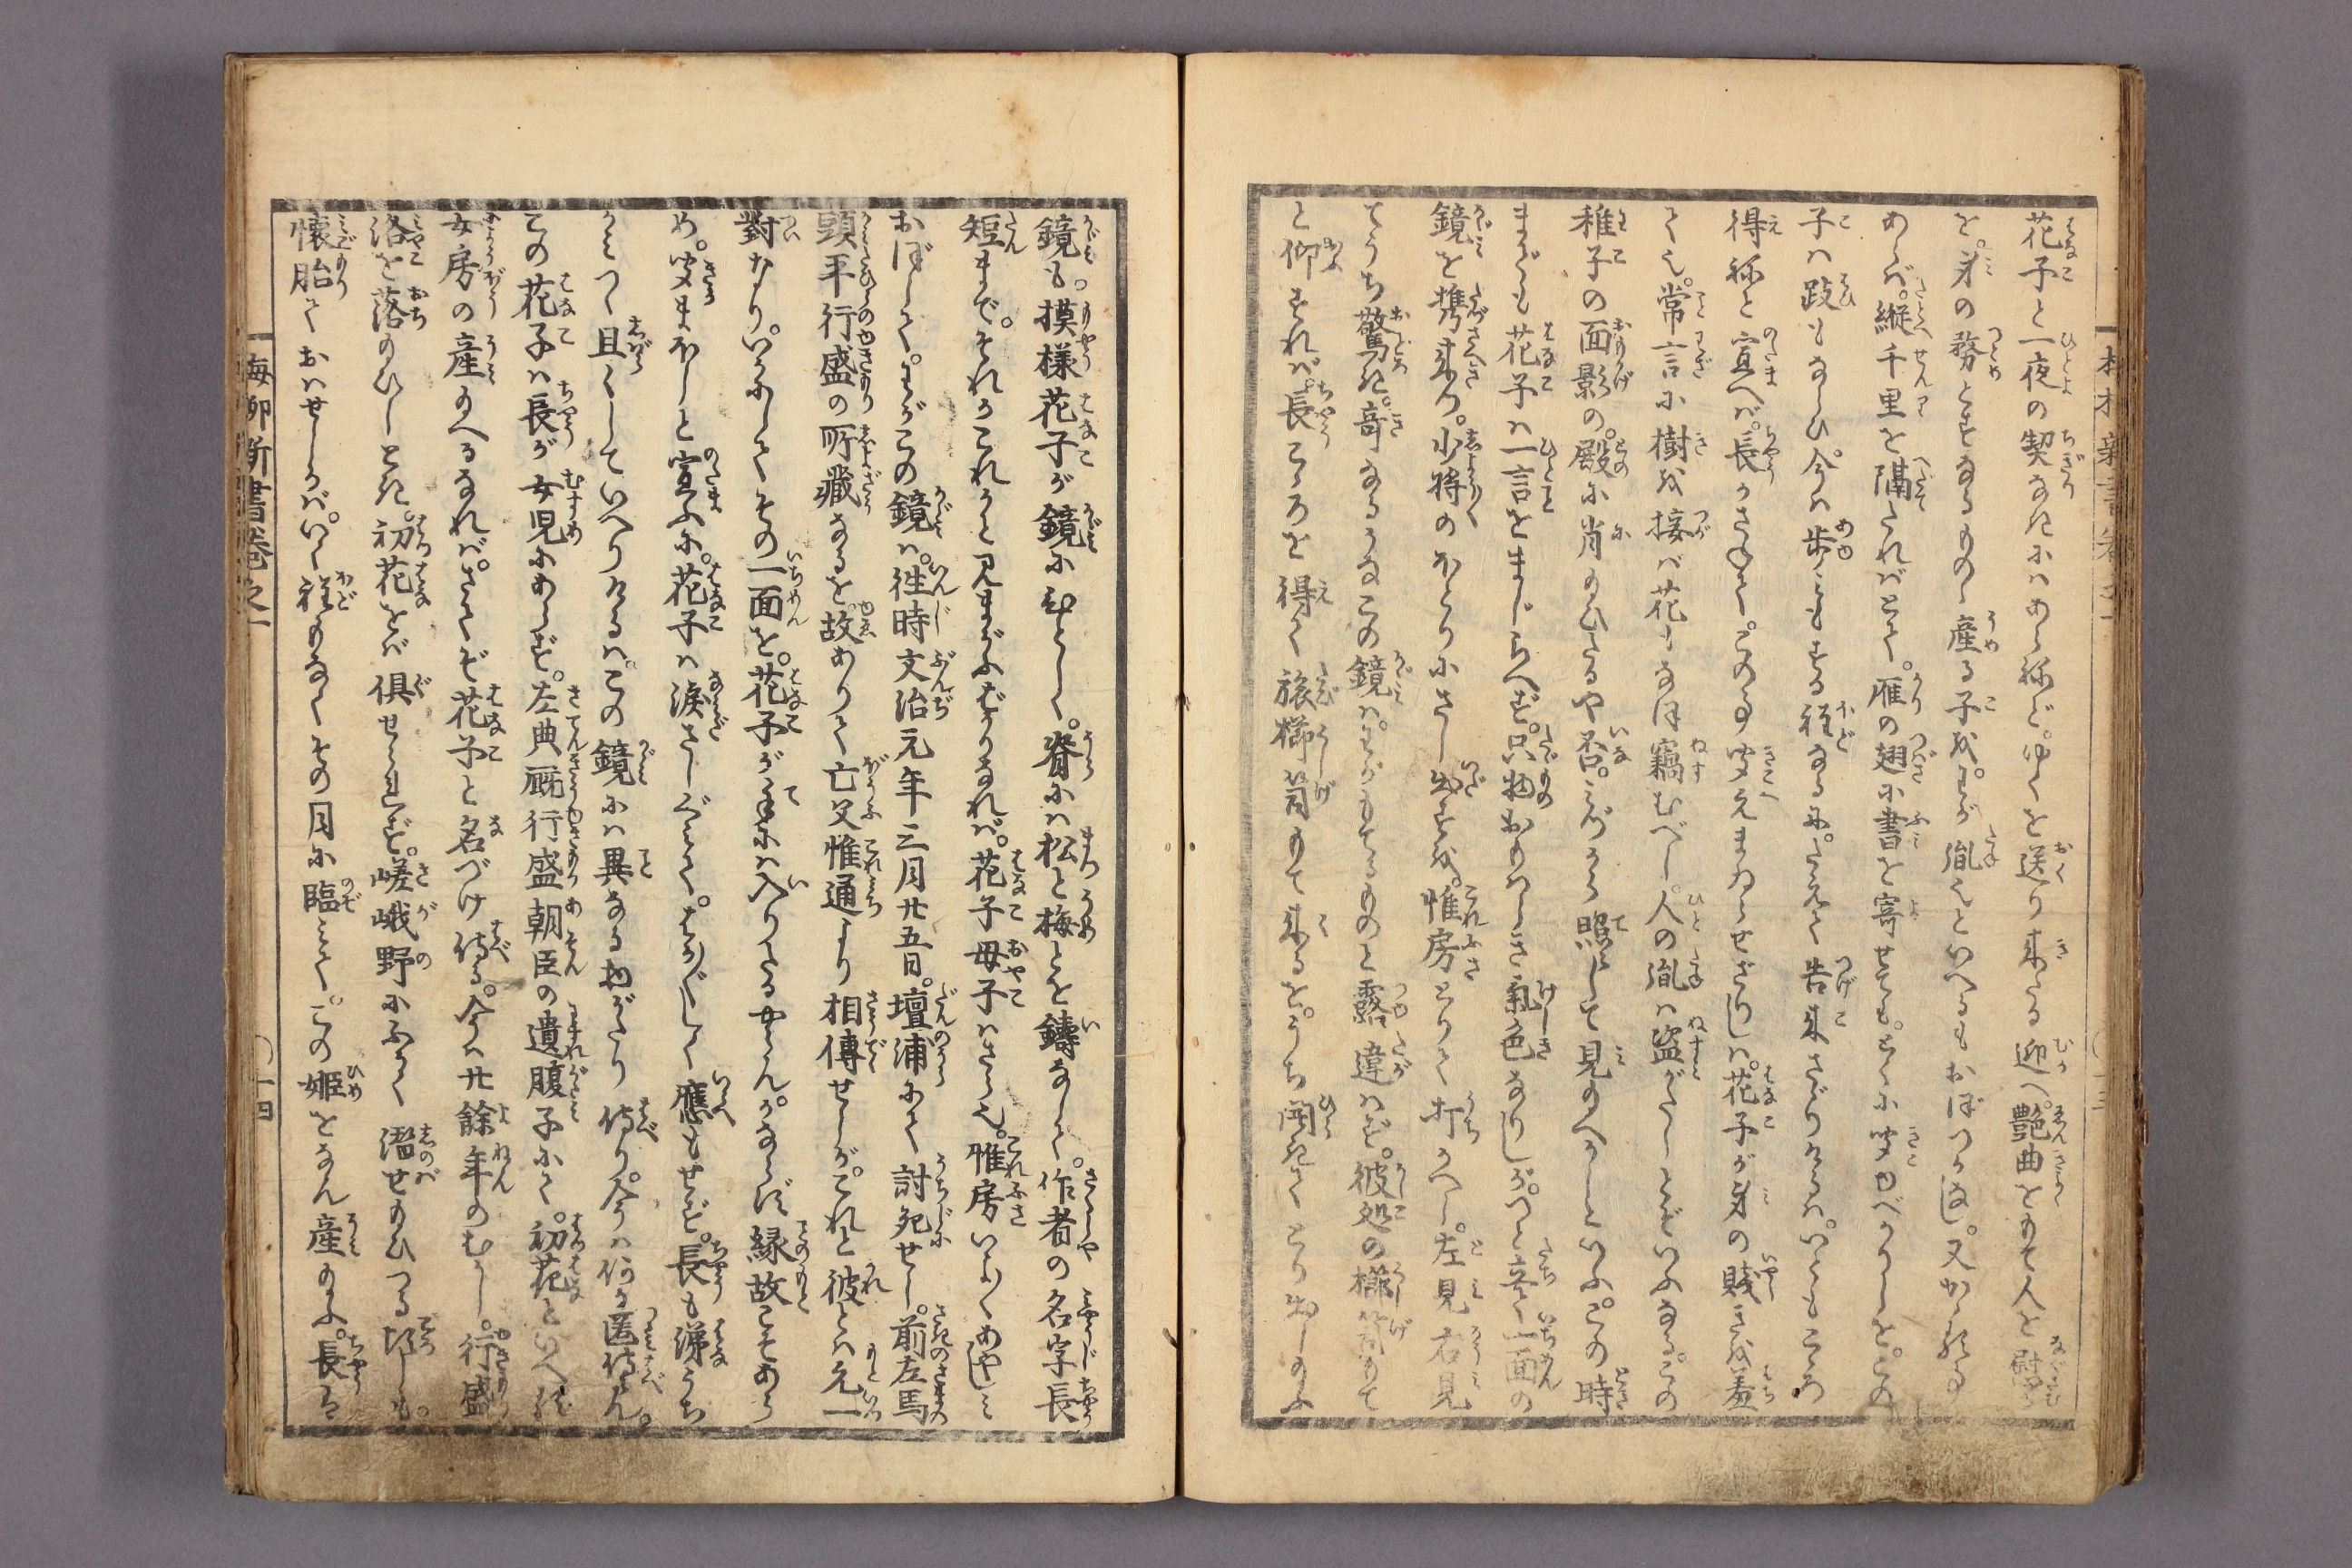 花子と一夜の契なきにはあらねど。ゆくを送り来たる迎へ。艶曲をもて人を慰る
を。身の務とするものゝ産る子を。わが胤也といへるもおぼつかなし。又かゝる事
あらば。縦千里を隔たればとて。雁の翅に書を寄せても。とくに聞ゆべかりしを。この
子は跂もならひ。今は歩みもする程なるに。たえて告来さゞりけるは。いともこゝろ
得ねと宣へば。長かさねて。この事聞えまゐらせざりしは。花子が身の賤きを羞
て也。常言に樹を接ば花もなほ竊むべし。人の胤は盗がたしとぞいふなる。この
稚子の面影の。殿に肖給ひたるや否。みづから照して見給へかしといふ。この時
まで花子は一言をまじらへず。只物おもはしき氣色なりしが。つと立て一面の
鏡を携来つ。少将のほとりにさし出すを。惟房とりて打かへし。左見右見
てうち驚き。奇なるかなこの鏡は。わがもてるものと露違はず。彼処の櫛笥もて
と仰すれば。長こゝろを得て旅櫛笥もて来るを。うち開きてとり出し給ふ
鏡も。摸様花子が鏡にひとしく。脊には松と梅とを鑄なして。作者の名字長
短まで。それかこれかと見まがふばかりなれば。花子母子はさら也。惟房いよ／＼あやしみ
おぼして。わがこの鏡は。徃時文治元年三月廿五日。壇浦にて討死せし。前左馬
頭平行盛の所藏なるを。故ありて亡父惟通より相傳せしが。これと彼とは元一
對なり。いかにしてその一面を。花子が手には入りたるやらん。かならず縁故こそあら
め。聞まほしと宣ふに。花子は涙さしぐみて。はか／＼しく應もせず。長も涕うち
かみつゝ且くしていへりけるは。この鏡には異なる物がたり侍り。今は何か匿侍らん。
この花子は長が女児にあらず。左典厩行盛朝臣の遺腹子にて。初花といへる
女房の産給へるなれば。さてぞ花子と名づけ侍る。今は廿餘年のむかし。行盛
洛を落給ひしとき。初花をば倶せられず。嵯峨野にふかく潜せ給ひつる折しも。
懐胎ておはせしかば。いく程もなくその月に臨みて。この姫をなん産給ふ。長は
梅柳新書巻之一
十四